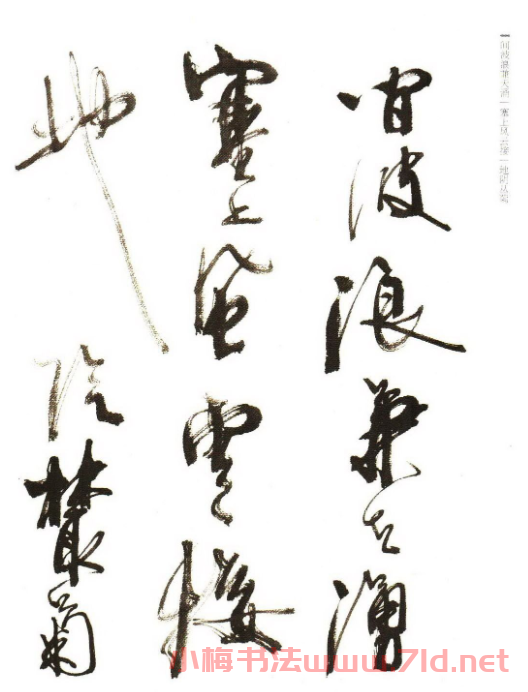 间波浪兼天涌｜塞上风云接｜地阴丛菊
間波浪兼天湧
塞上風雲接
地陰叢菊
小梅书法www.7ld.net